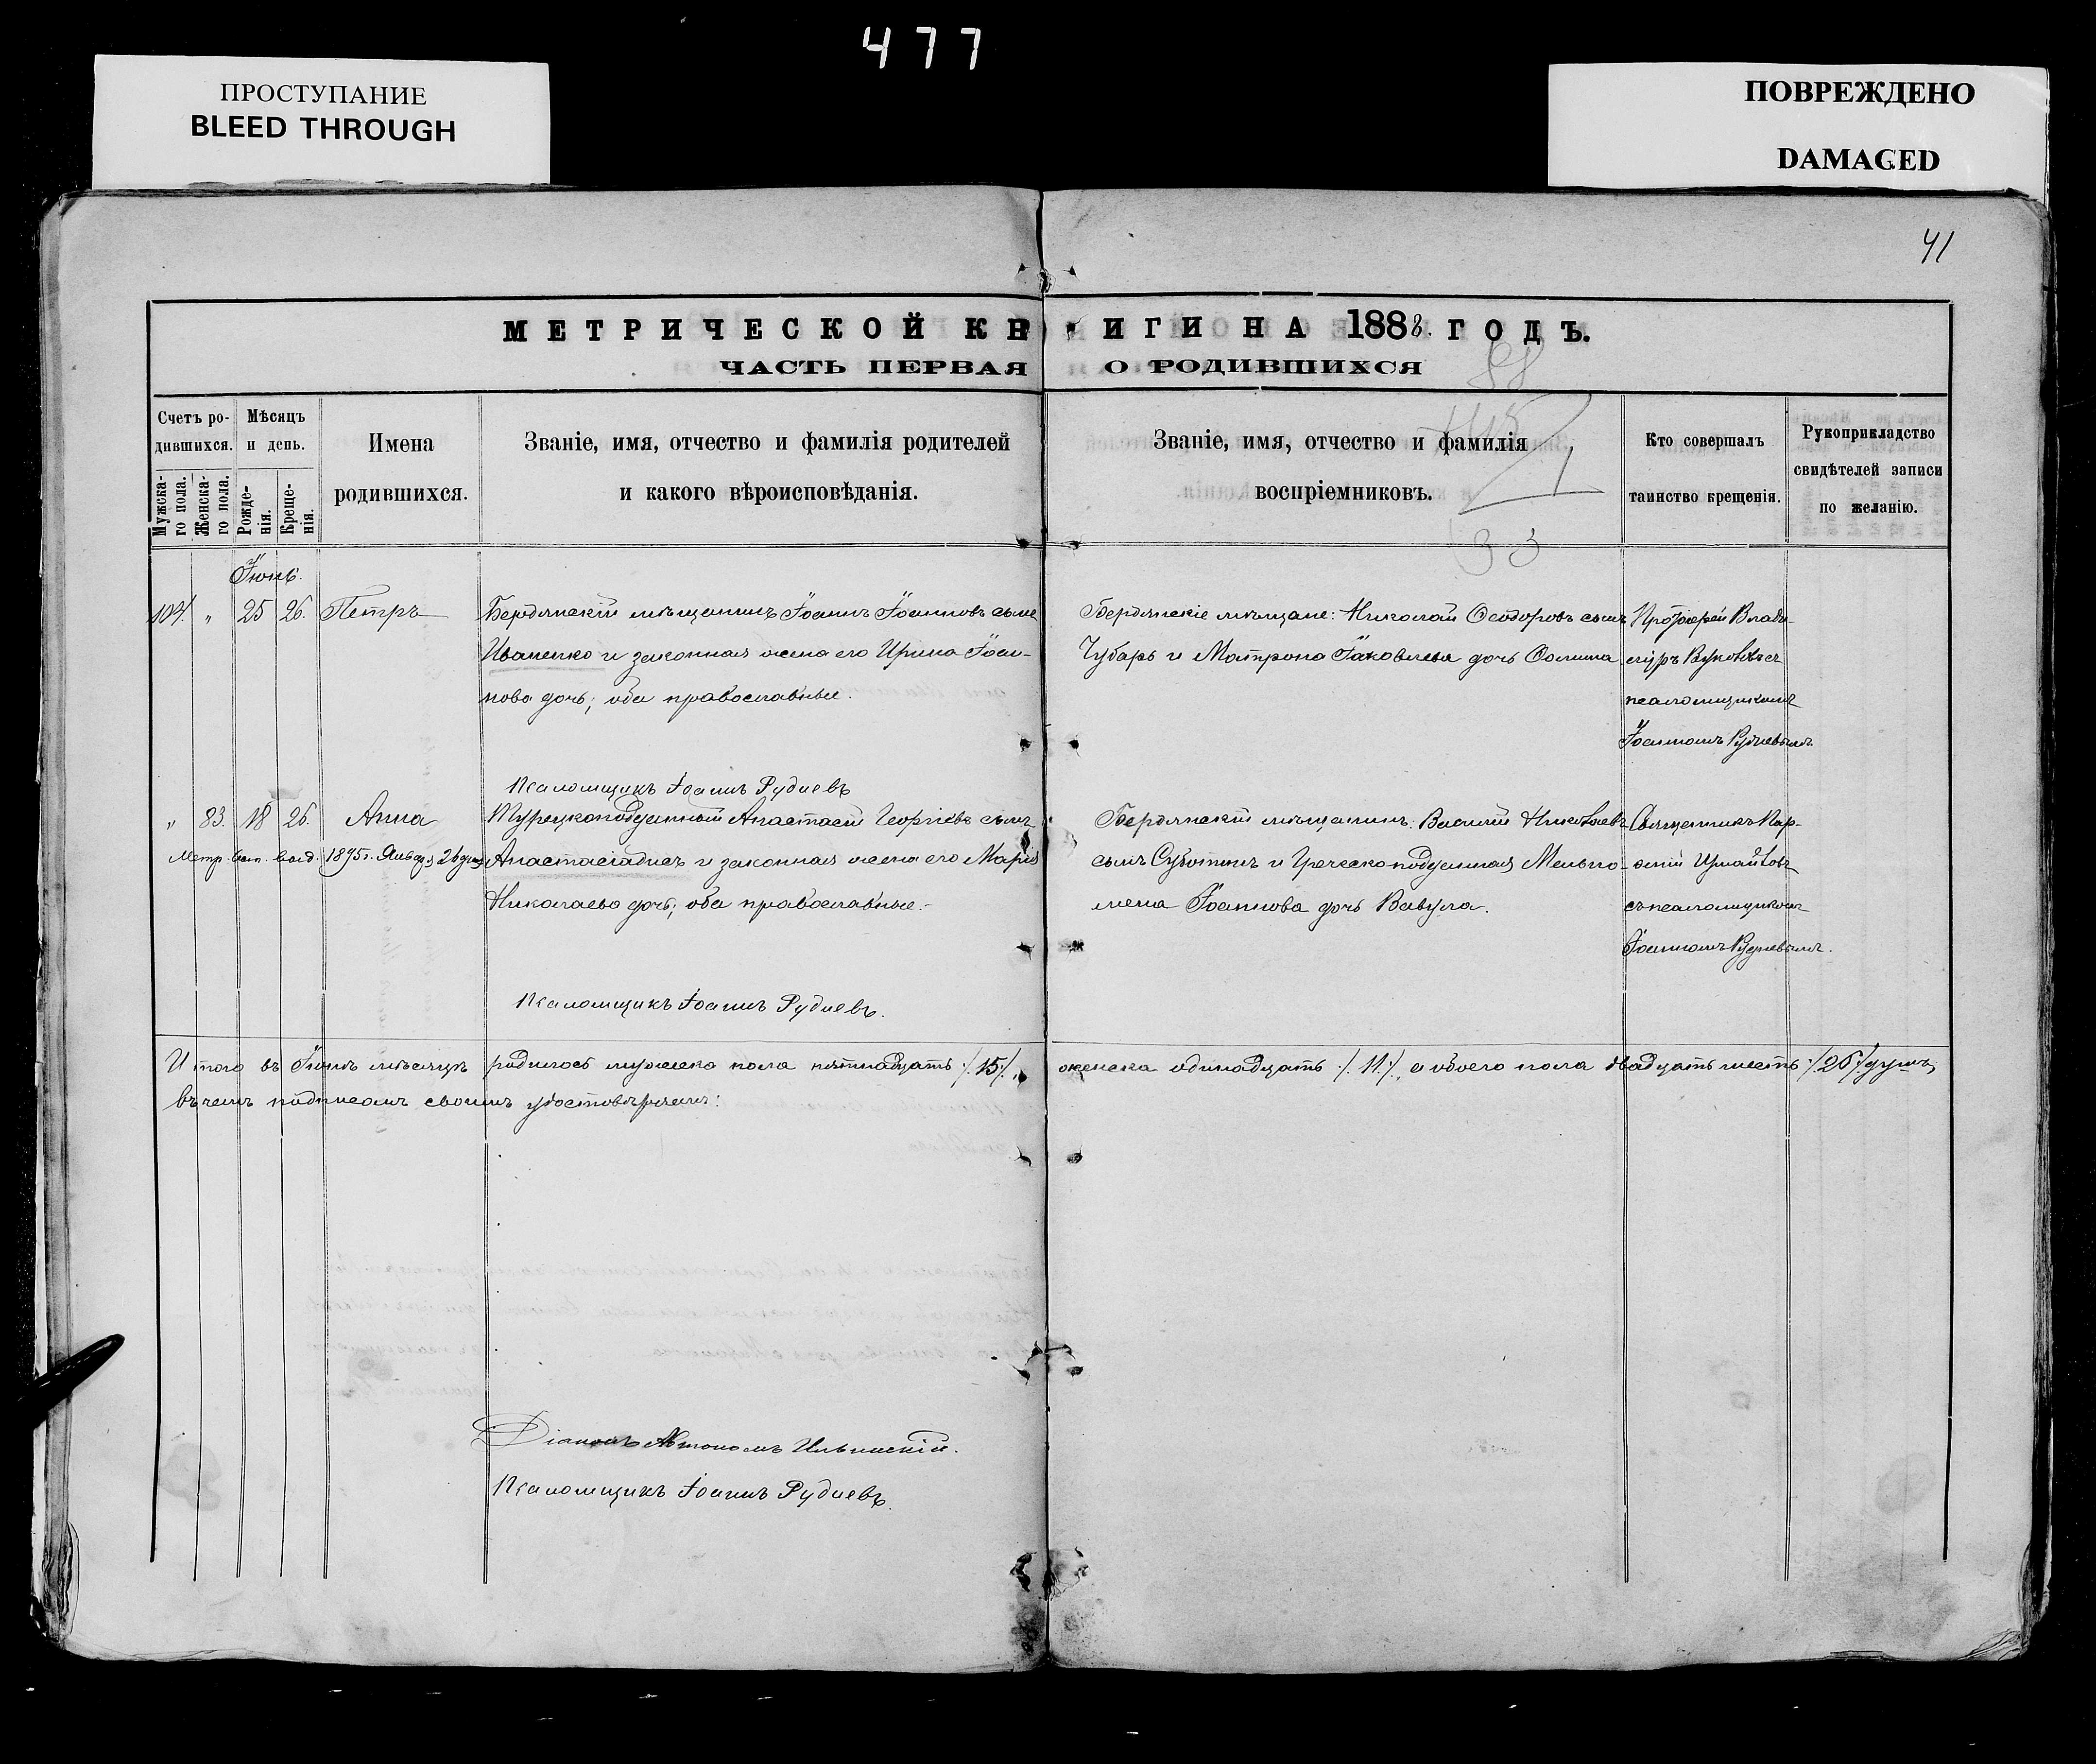 477
ПРОСТУПАНИЕ
BLEED THROUGH
ПОВРЕЖДЕНО
DAMAGED
41
МЕТРИЧЕСКОЙ КН ИГИ НА 1888. ГОДЪ.
ЧАСТЬ ПЕРВАЯ О РОДИВШИХСЯ
Счетъ ро-
дившихся.
Мужска-
го пола.
Женска-
го пола.
Мѣсяцъ
и день.
Рожде-
нія.
Креще-
нія.
Имена
родившихся.
Званіе, имя, отчество и фамилія родителей
и какого вѣроисповѣданія.
Званіе, имя, отчество и фамилія
воспріемниковъ.
Кто совершалъ
таинство крещенія.
Рукоприкладство
свидѣтелей записи
по желанію.
33
Іюнь.
104. " 25 26. Петръ
Бердянскій мѣщанинъ Іоаннъ Іоанновъ сынъ
Иваненко и законная жена его Ирина Іоан-
нова дочь; оба православные.
Бердянскіе мѣщане: Николай Ѳеодоровъ сынъ
Чубарь и Матрона Іаковлева дочь Ѳомина
Протоіерей Влади-
міръ
псаломщикомъ
Іоанномъ Рудневымъ
Псаломщикъ Іоаннъ Рудневъ
" 83. 18 26. Анна
Метр. вып. выд. 1895 г. Января 26 дня
Турецкоподданный Анастасій Георгіевъ сынъ
Анастасіадисъ и законная жена его Марія
Николаева дочь; оба православные.-
Бердянскій мѣщанинъ: Василій Николаевъ
сынъ Субботинъ и Греческоподданная Мельпо-
мена Іоаннова дочь Вавула.
Священникъ Пар-
ѳеній
съ псаломщикомъ
Іоанномъ Рудневымъ.
Псаломщикъ Іоаннъ Рудневъ.
Итого въ Іюнѣ мѣсяцѣ родилось мужеска пола пятнадцать /.15/., женска одинадцать /.11./, а обоего пола двадцать шесть /.26/. душъ,
въ чемъ подписомъ своимъ удостовѣряемъ:
Діаконъ Автономъ Ильинскій.
Псаломщикъ Іоаннъ Рудневъ.